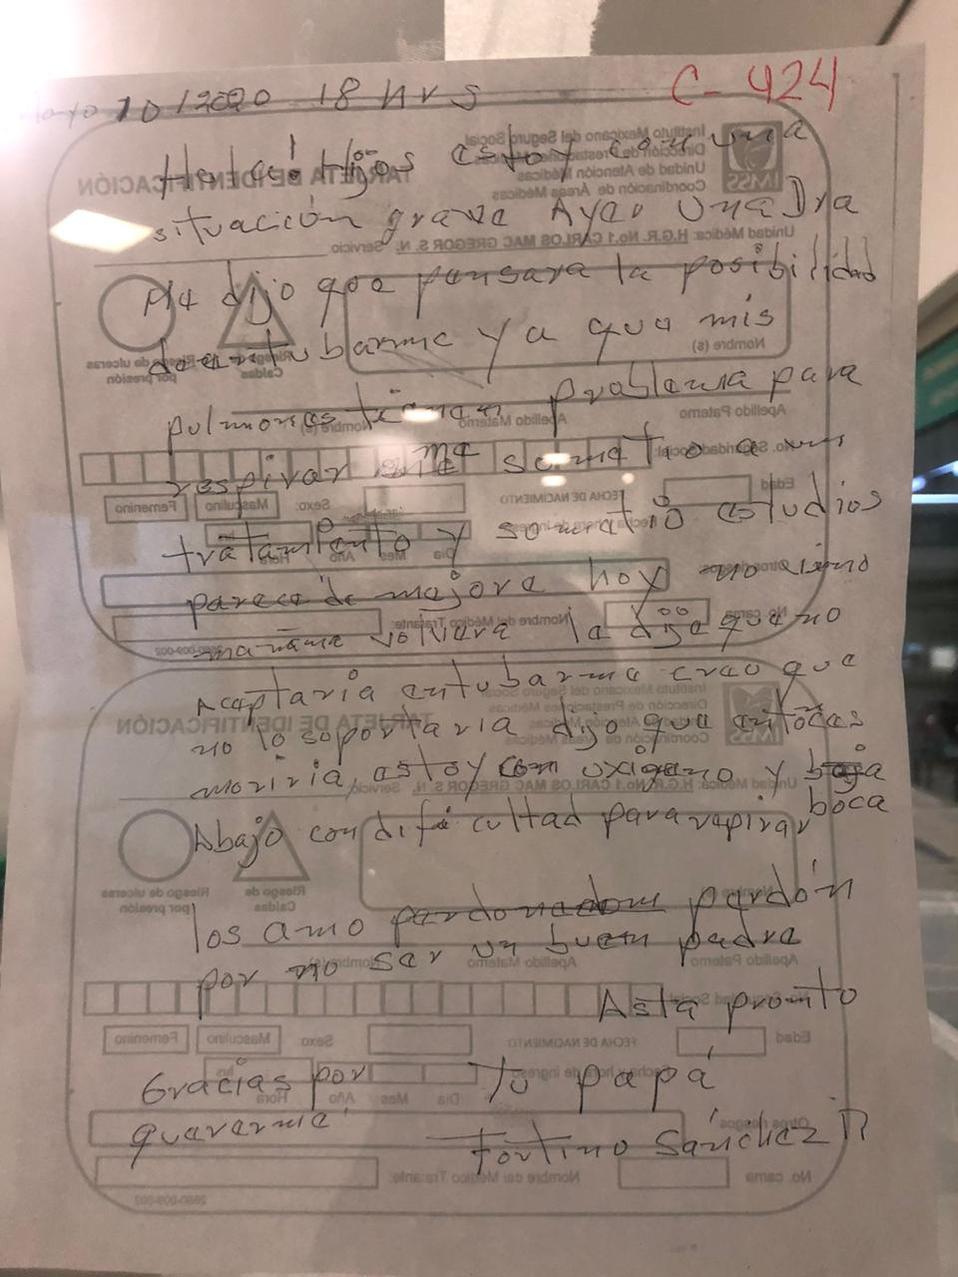 Mayo 10 / 2020 18 hrs
C-424
Hijos estoy con una
situación grave Ayer una Dra
Me dijo que pensara la posibilidad
de entubarme ya que mis
pulmones tienen problema para
respirar me sometio a un
tratamiento y sometio estudios
parece de mejora hoy no vino
mañana volvera la dije que no
Aceptaria entubarme creo que
no lo soportaria dijo que entoces
moriria, estoy com oxigeno y boja
boca
Abajo con dificultad para repirar
los amo perdón
por no ser un buen padre
Asta pronto
Gracias por Tu papá
quererme
Fortino Sánchez
Instituto Mexicano del Seguro Social
Dirección de Prestaciones Médicas
Unidad de Atención Médicas
Coordinación de Áreas Médicas
IMSS
TARJETA DE IDENTIFICACIÓN
Unidad Médica: H.G.R. No.1 CARLOS MAC GREGOR S. N. Servicio
Riesgo de Caidas
Riesgo de ulceras por presión
Nombre (s)
Apellido Paterno Apellido Materno Nombre (s)
No. Seguridad Social:
Edad FECHA DE NACIMIENTO Sexo: Masculino Femenino
Fecha y hora de ingreso
Dia Mes Año Hora
Otros riesgos
No. cama Nombre del Médico Tratante:
2660-009-002
Instituto Mexicano del Seguro Social
Dirección de Prestaciones Médicas
Unidad de Atención Médicas
Coordinación de Áreas Médicas
IMSS
TARJETA DE IDENTIFICACIÓN
Unidad Médica: H.G.R. No.1 CARLOS MAC GREGOR S. N. Servicio
Riesgo de Caidas
Riesgo de ulceras por presión
Apellido Paterno Apellido Materno Nombre (s)
Edad FECHA DE NACIMIENTO Sexo Masculino Femenino
Fecha y hora de ingreso
Dia Mes Año Hora
Otros riesgos
No. cama Nombre del Médico Tratante:
2660-009-002